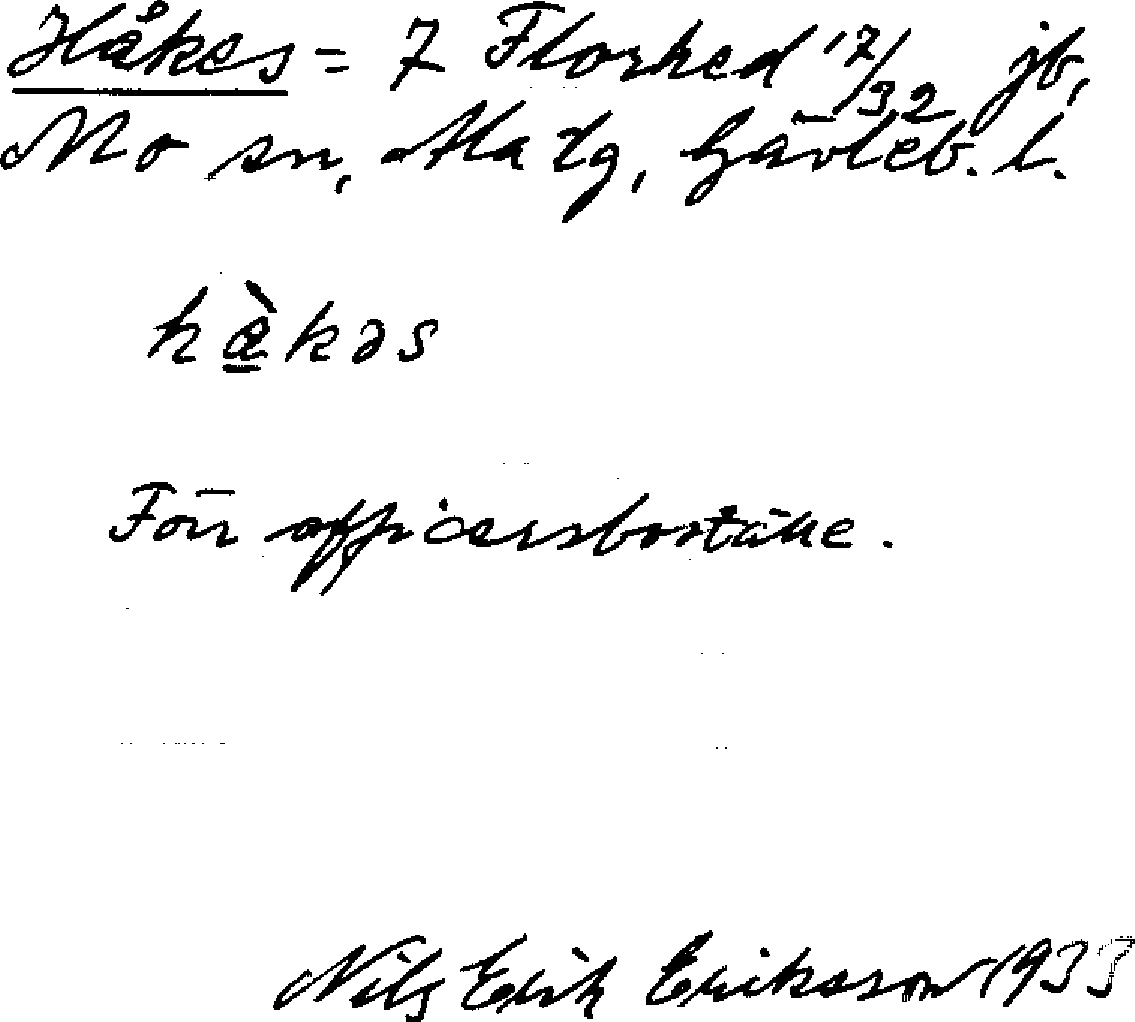 Håkes = 7 Florhed 17/32 jb,
Mo sn, Ala tg, Gävleb. l.
hæ̠̀kəs
Förr officersboställe.
Nils Erik Eriksson 1933